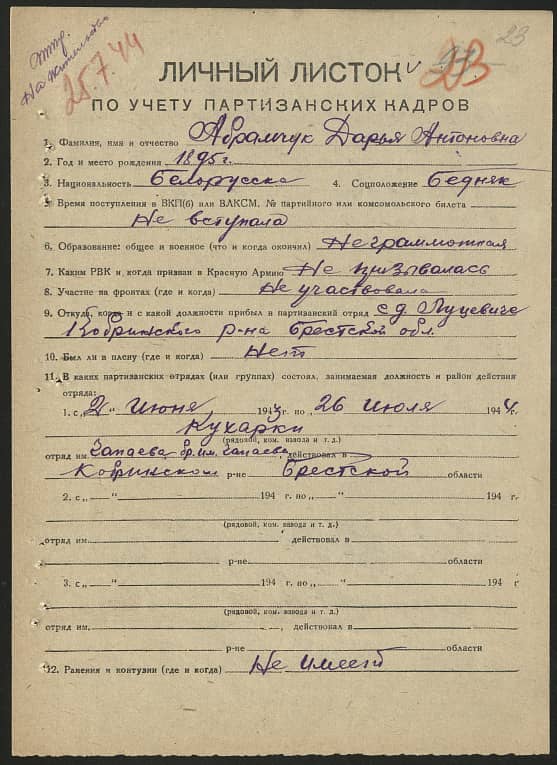 на жительство
25.7.44
23
23
ЛИЧНЫЙ ЛИСТОК
ПО УЧЕТУ ПАРТИЗАНСКИХ КАДРОВ
1. Фамилия, имя и отчество Абрамчук Дарья Антоновна
2. Год и место рождения 1895г.
3. Национальность белорусска 4. Соцположение бедняк
5. Время поступления в ВКП(б) или ВЛКСМ, № партийного или комсомольского билета
Не вступала
6. Образование: общее и военное (что и когда окончил) Неграммотная
7. Каким РВК и когда призван в Красную Армию Не призывалась
8. Участие на фронтах (где и когда) Не участвовала
9. Откуда, когда и с какой должности прибыл в партизанский отряд с д. Луцевиче
Кобринского р-на Брестской обл.
10. Был ли в плену (где и когда) Нет
11. В каких партизанских отрядах (или группах) состоял, занимаемая должность и район действия
отряда:
1. с „2" Июня 1943 г. по „26 Июля 1944 г.
Кухарки
(рядовой, ком. взвода и т. д.)
отряд им Чапаева бр. им. Чапаева, действовал в
Кобринском р-не Брестской области
2. с „ — " 194 г. по „ — " 194 г.
(рядовой, ком. взвода и т. д.)
отряд им. действовал в
р-не области
3. с „ — " 194 г. по „ — " 194 г.
(рядовой, ком. взвода и т. д.)
отряд им. , действовал в
р-не области
12. Ранения и контузии (где и когда) Не имеет